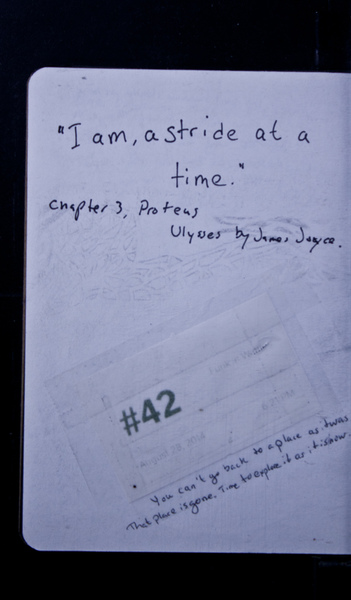 "I am, a stride at a
time."
Chapter 3, Proteus
Ulysses by James Joyce.
#42
You can't go back to a place as it was
That place is gone. Time to explore it as it is now.